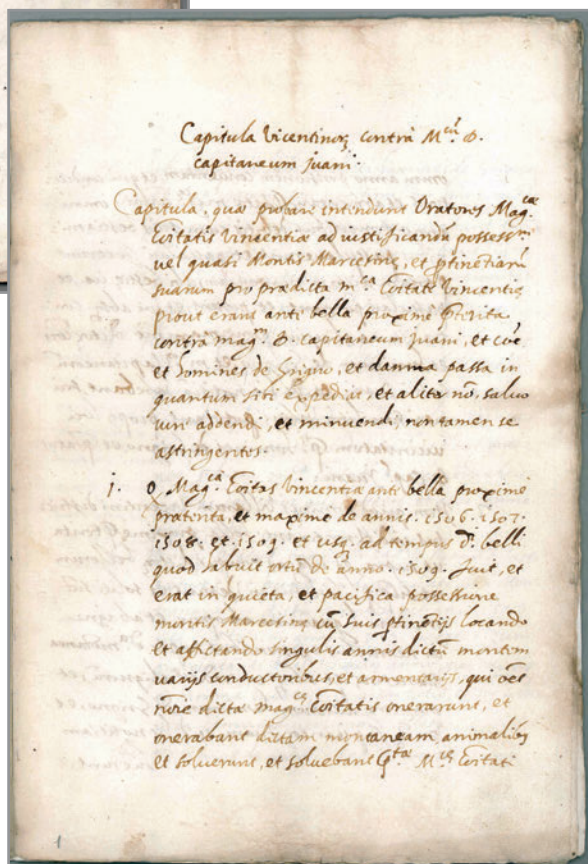 Capitula vicentinoꝝ contra M.cũ D.
capitaneum juani.
Capitula, quæ probare intendunt Oratores Mag.cæ
Coitatis Vincentiæ ad iustificandũ possess.m
uel quasi Montis Marcesinę, et ptinẽtiarũ
suarum pro prædicta m.ca Coitate Vincentię
prout erant ante bella proxime pterita
contra mag.m D. capitaneum juani, et coẽ
et homines de Grigno, et damna passa in
quantum sibi expediat, et aliter nõ, saluo
iure addendi, et minuendi, non tamen se
astringentes.
1. Q Mag.ca Coitas Vincentiæ ante bella proxime
præterita, et maxime de annis. 1506. 1507.
1508. et. 1509. et usq. ad tempus d. belli
quod habuit ortũ de anno. 1509. fuit, et
erat in quieta, et pacifica possessione
montis Marcesinę cũ suis ptinẽtijs locando
et affictando singulis annis dictũ montem
varijs conductoribus, et armentarijs, qui oẽs
noĩe dictæ mag.cę Coitatis onerarunt, et
onerabant dictam montaneam animaliбꝰ
et soluerunt, et soluebant p.tæ M.cę Coitati
1